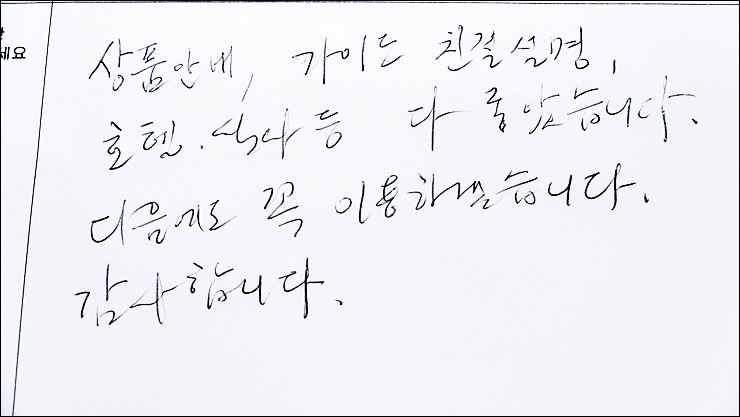 세요
상품안내, 가이드 친절 설명,
호텔·식사 등 다 좋았습니다.
다음에도 꼭 이용하겠습니다.
감사합니다.